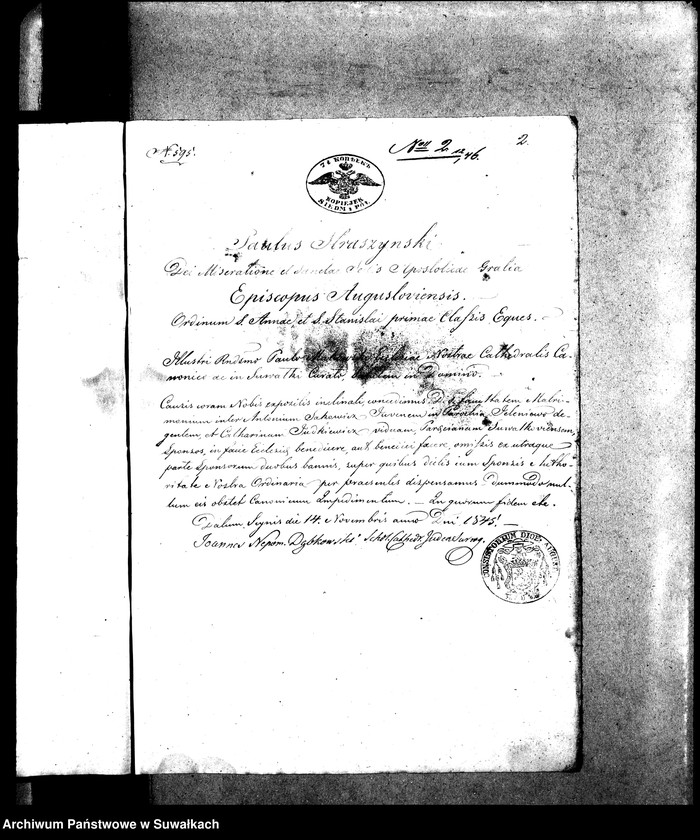 N. 595.
Nrl 2 12/46.
2.
74 КОПѢЕКЪ
KOPIEJEK
SIEDM I PÓŁ
Paulus Straszynski
Dei Miseratione et Sanctae Sedis Apostolicae Gratia
Episcopus Augustoviensis.
Ordinum S. Annae, et S. Stanislai primae Classis Eques. —
Illustri Rndsmo Paulo Ecclesiae Nostrae Cathedralis Ca-
nonico ac in Suwałki Curato, Salutem in Domino.
Causis coram Nobis expositis inclinati, concedimus D. V. facultatem, Matri-
monium inter Antonium Sakowicz Juvenem in Parochia Jeleniewo de-
gentem, et Catharinam Judkiewicz viduam, Parocianam Suwałki videlicet
Sponsos, in facie Ecclesiae benedicere, aut benedici facere, omissis ex utraque
parte Sponsorum duobus bannis, super quibus dictis cum Sponsis Autho-
ritate Nostra Ordinaria per praesentes dispensamus. Dummodo nul-
lum eis obstet Canonicum Impedimentum. — In quorum fidem etc.
Datum Seynis die 14. Novembris anno Dni 1845. —
Joannes Nepom. Dąbkowski Schol. Cathedr. Judex Surrog.
CONSISTORIUM DIOE. AUGUST.
Archiwum Państwowe w Suwałkach